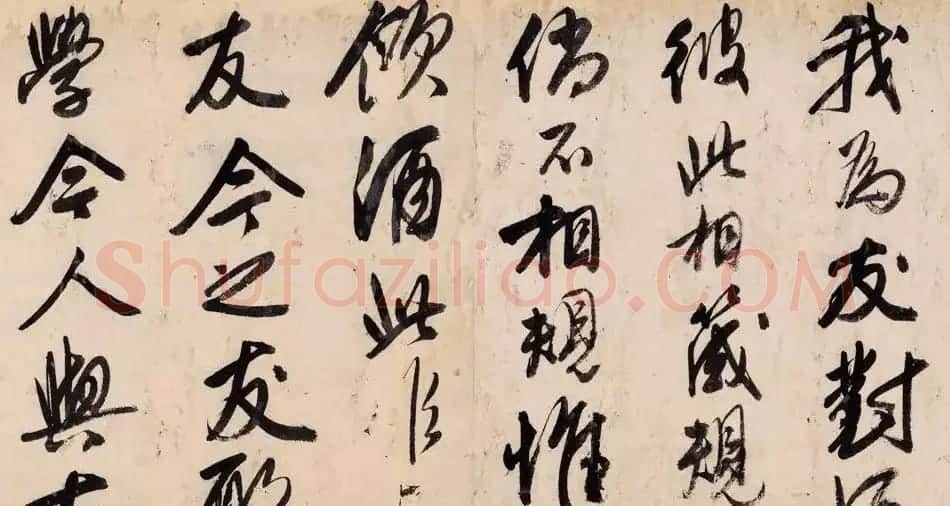 我為友對
彼此相箴規
倘不相規惟
飲酒此
友今之友
學今人與
Shufaziliao.COM